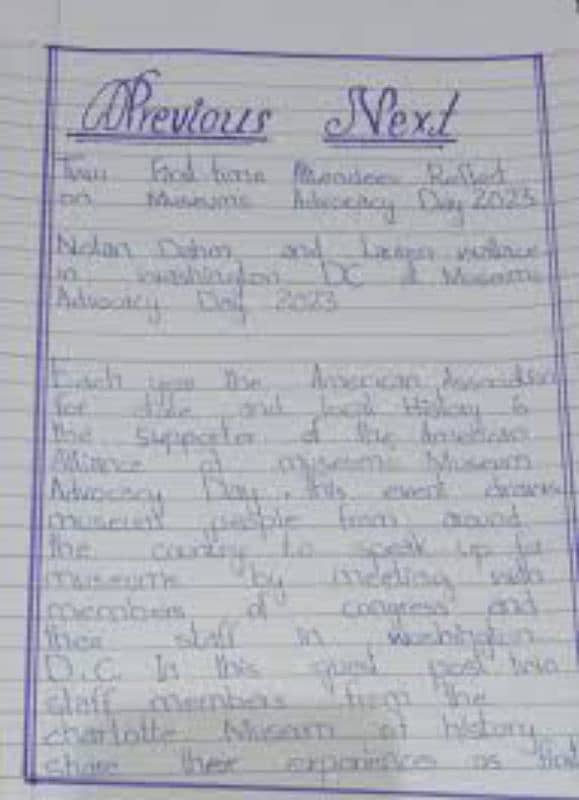 Previous Next
Two First time Attendees Reflect
on Museums Advocacy Day 2023
Nolan Dahm and Lauren Wallace
in Washington DC at Museums
Advocacy Day 2023
Each year the American Association
for state and local History is
the supporter of the American
Alliance of museums Museum
Advocacy Day. this event draws
museum people from around
the country to speak up for
museums by meeting with
members of congress and
their staff in washington
D.C. In this guest post two
staff members from the
charlotte Museum of history
share their experiences as first